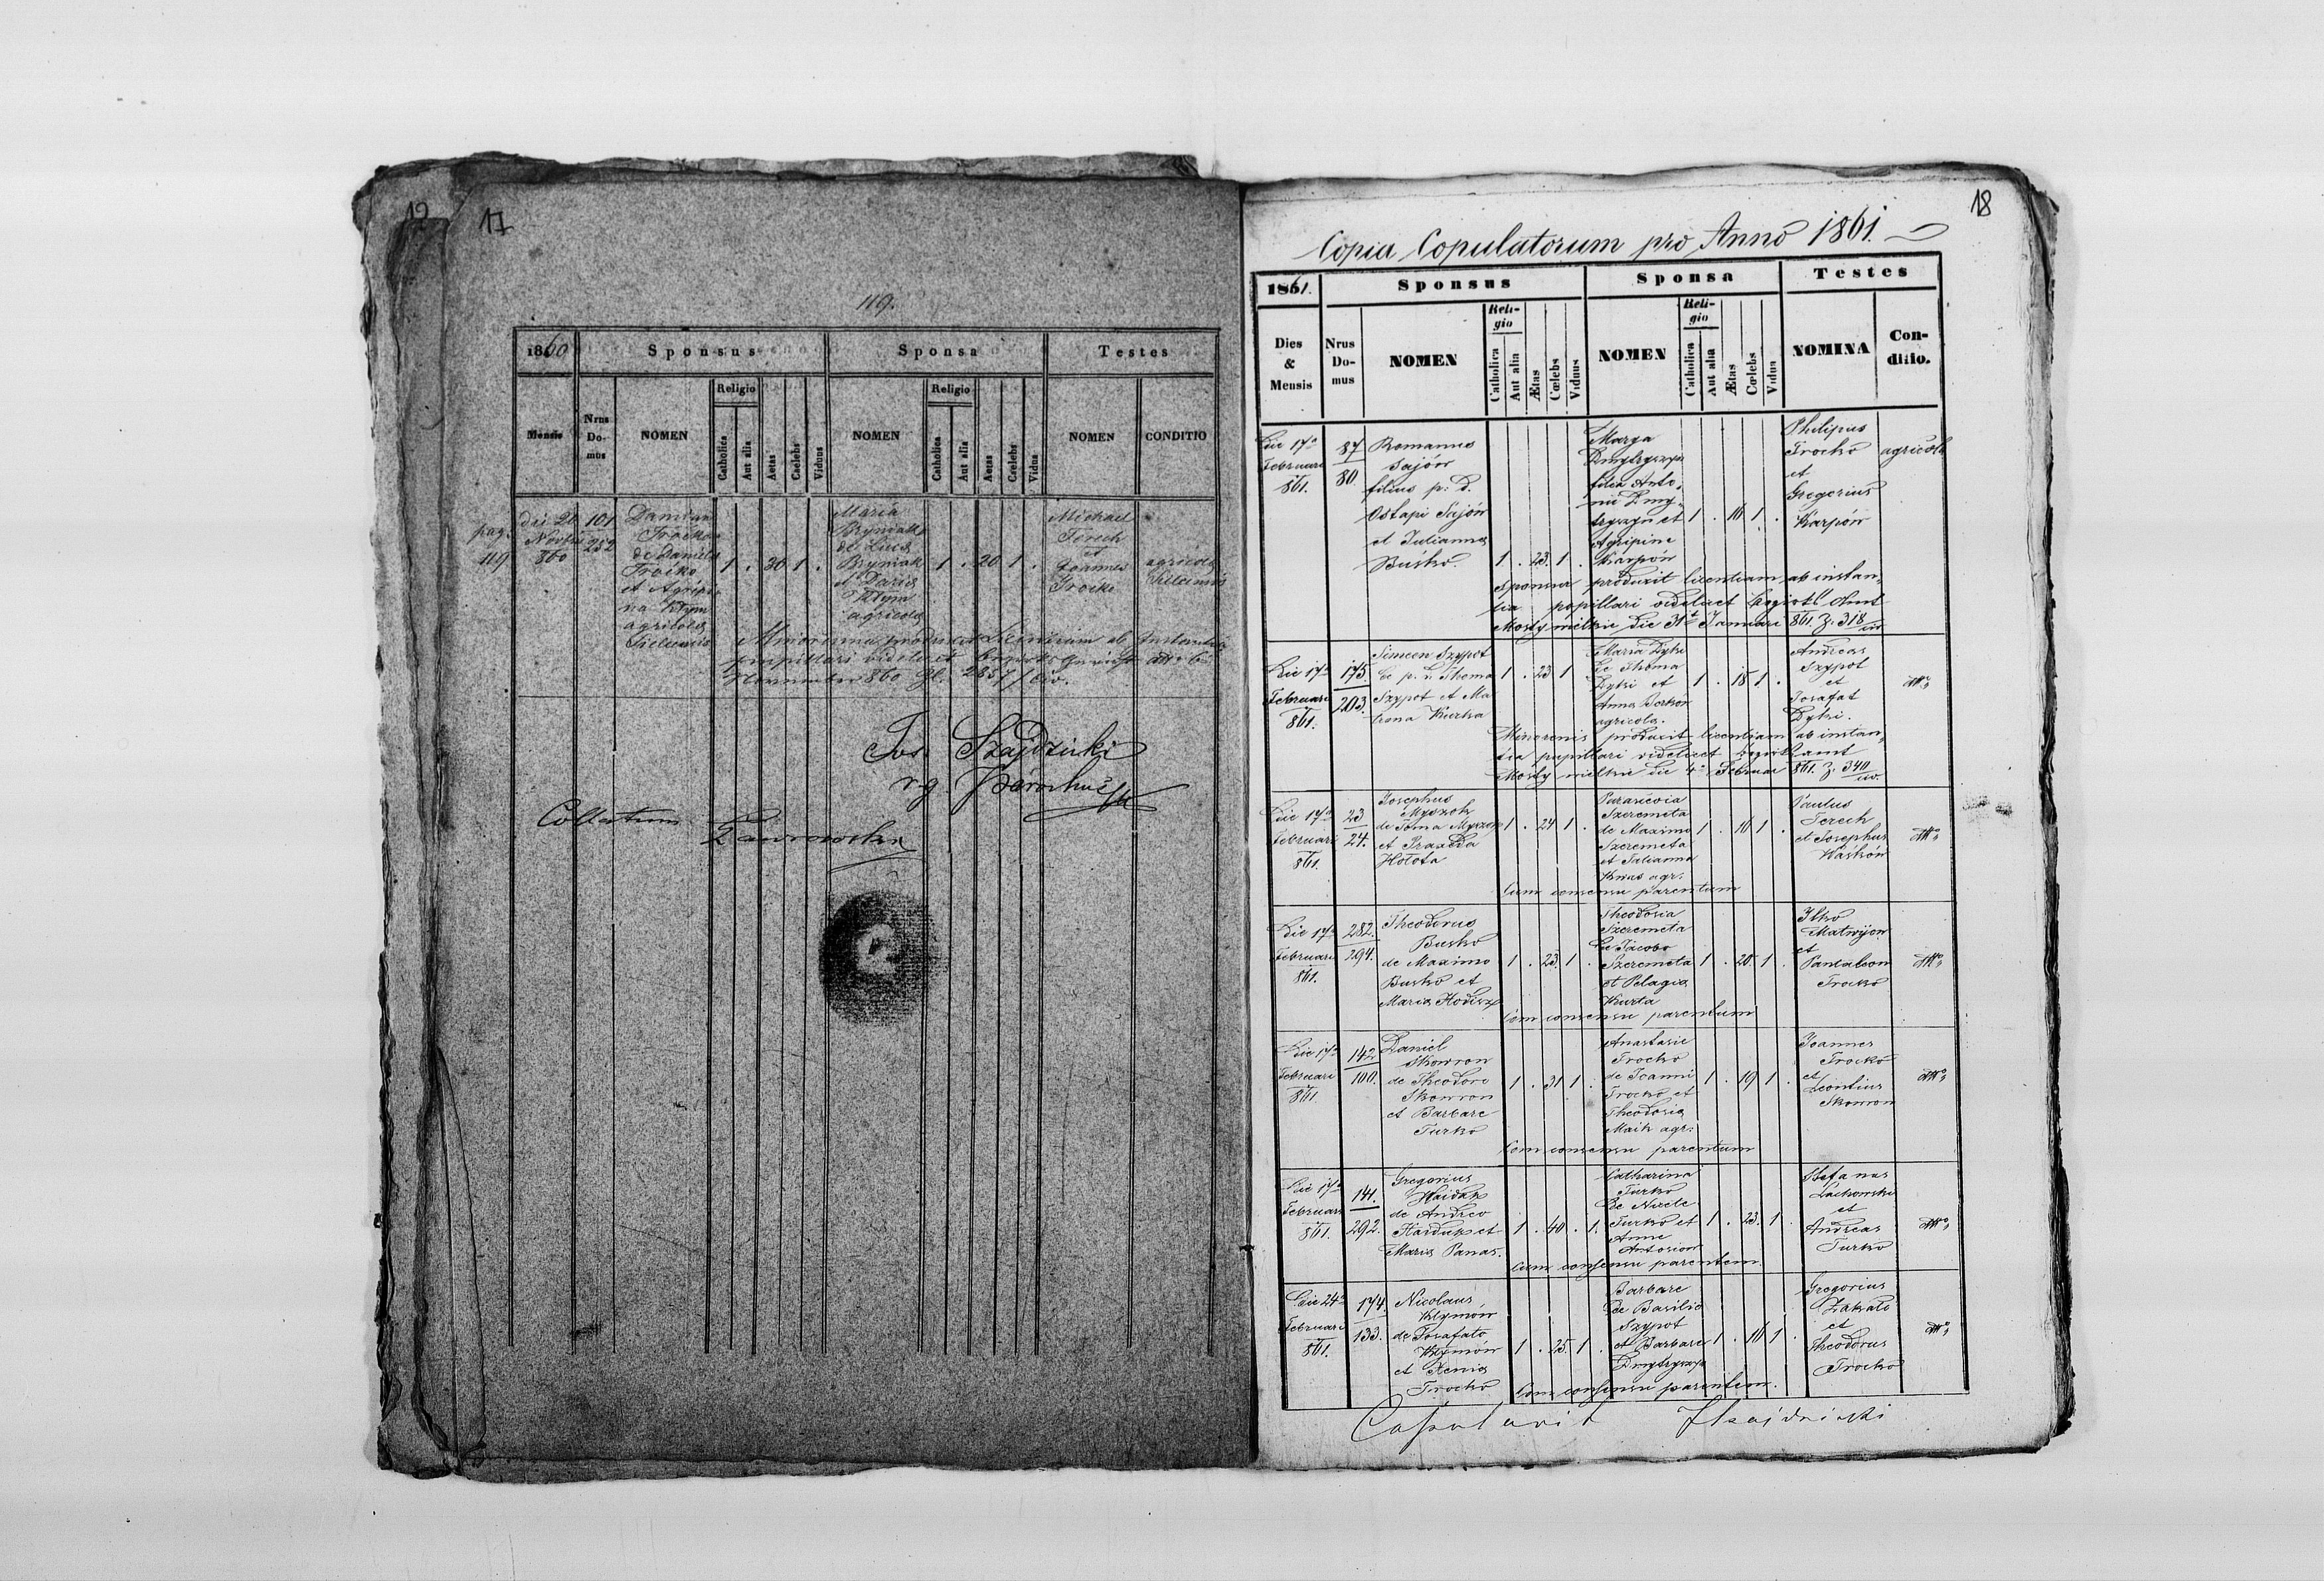 12
17
119.
1860
Sponsus
Sponsa
Testes
Mensis
Nrus Do-mus
NOMEN
Religio
Catholica
Aut alia
Aetas
Caelebs
Viduus
NOMEN
Religio
Catholica
Aut alia
Aetas
Caelebs
Vidua
NOMEN
CONDITIO
pag. 119
die 21
Novbri
860
101
252
Damian
Troćko
de Daniele
Troćko
et Agripi
na Kłym
agricola
1 . 30 1 .
Maria
Bryniak
de Luca
Bryniak
et Daria
Kłym
agricola
1 . 20 1 .
Michael
Terech
et
Joannes
Troćko
agricola
Minorenna produxit licentiam ab instantia
pupillari videlicet
Novembri 860 2857/civ.
Jos. Szajdzicki
Parochus
Collectum
18
Copia Copulatorum pro Anno 1861.
1861.
Sponsus
Sponsa
Testes
Dies & Mensis
Nrus Do-mus
NOMEN
Reli-gio
Catholica
Aut alia
Ætas
Cœlebs
Viduus
NOMEN
Reli-gio
Catholica
Aut alia
Ætas
Cœlebs
Vidua
NOMINA
Con-ditio.
Die 17a
Februari
861.
87
80.
Romanus
Sajón
filius p: d.
Ostapi Sajón
et Julianna
Buśko.
1 . 23. 1 .
Marya
Dmytryszyn
filia Anto-
nii Dmy-
tryszyn et
Agripine
Karpón
1 . 16 1 .
Philipus
Trocko
et
Gregorius
Karpón
agricola
Sponsa produxit licentiam ab instan-
tia pupillari videlicet Bezirks Amt
Mosty wielkie die 31 Januari 861. Z. 318/civ
Die 17a
Februari
861.
175.
203.
Simeon Szypot
de p. d. Thoma
Szypot et Ma
trona Kurka
1 . 23 1
Maria Dyki
de Thoma
Dyki et
Anna
agricola.
1 . 18 1 .
Andreas
Szypot
et
Josafat
Dyki.
dtto
Minorenis produxit licentiam ab instan-
tia pupillari videlicet Bezirksamt
Mosty wielkie die 4a Februar 861. Z. 340/civ.
Die 17a
Februari
861.
23
24.
Josephus
Myszok
de Toma Myszok
et Praxeda
Hołota
1 . 24 1 .
Parascevia
Szeremeta
de Maximo
Szeremeta
et Julianna
Kwas agr.
1 . 16 1 .
Paulus
Terech
et Josephus
Waśkón
dtto
Cum consensu parentum
Die 17a
Februari
861.
282.
294.
Theodorus
Busko
de Maximo
Busko et
Maria
1 . 23. 1 .
Theodosia
Szeremeta
de Jacobo
Szeremeta
et Pelagia
Kurta
1 . 20. 1 .
Ilko
Matwijon
et
Pantaleon
Trocko
dtto
Com consensu parentum
Die 17a
Februari
861.
142
100.
Daniel
Skowron
de Theodoro
Skowron
et Barbare
Turko
1 . 31 1 .
Anastasie
Trocko
de Joanni
Trocko et
Theodosia
Maik agr:
1 . 19 1 .
Joannes
Trocko
et
Leontius
Skowron
dtto
Com consensu parentum
Die 17a
Februari
861.
141.
292.
Gregorius
Haiduk
de Andreo
Haiduk et
Maria Panas.
1 . 40 . 1.
Catharina
Turko
Turko et
Anne
Antosion
1 . 23. 1 .
Stefanus
Lachowski
et
Andreas
Turko
dtto
Cum consensu parentem.
Die 24a
Februari
861.
174.
133.
Nicolaus
Kłymón
de Josafato
Kłymón
et Xenia
Trocko
1 . 25. 1 .
Barbare
de Basilio
Szypot
et Barbare
Dmytryszyn
1 . 16 1 .
Gregorius
Zakało
et
Theodorus
Trocko
dtto
Com consensu parentem.
Copulavit Szajdzicki